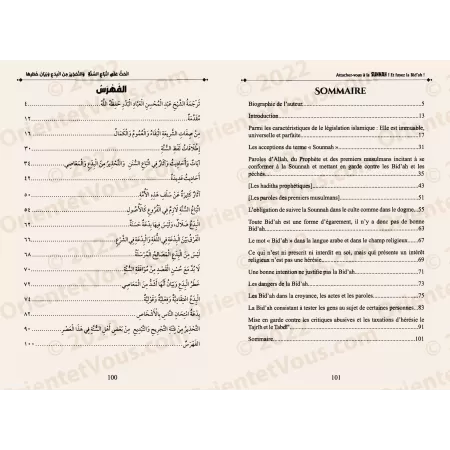 الحث على اتباع السنة والتحذير من البدع وبيان خطرها
الفهرس
ترجمة الشيخ عبد المحسن العباد البدر حفظه الله ............ ٤
مقدمة ............ ١٢
من صفات الشريعة البقاء والعموم والكمال ............ ١٦
إطلاقات لفظ السنة ............ ٣٠
آيات وأحاديث وآثار في اتباع السنن والتحذير من البدع والمعاصي ............ ٣٤
أحاديث عديدة
آثار كثيرة عن سلف هذه الأمة ............ ٥٠
اتباع السنة لازم في الفروع كالأصول
البدع ضلال، وليس فيها بدعة حسنة
الفرق بين البدعة في اللغة والبدعة في الشرع
ليس من البدع المصالح المرسلة
لا بد مع حسن القصد من موافقة السنة ............ ٧٠
خطر البدع وبيان أنها أشد من المعاصي
البدع اعتقادية وفعلية وقولية
بدعة امتحان الناس بالأشخاص
التحذير من فتنة التجريح والتبديع من بعض أهل السنة في هذا العصر ............ ٩٠
الفهرس ............ ١٠٠
100
Attachez-vous à la SUNNAH ! Et fuyez la Bid'ah !
SOMMAIRE
Biographie de l'auteur............5
Introduction............13
Parmi les caractéristiques de la législation islamique : Elle est immuable,
universelle et parfaite............17
Les acceptions du terme « Sounnah »............31
Paroles d'Allah, du Prophète et des premiers musulmans incitant à se
conformer à la Sounnah et mettant en garde contre les Bid'ah et les
péchés............35
[Les hadiths prophétiques]............43
[Les paroles des premiers musulmans]............51
L'obligation de suivre la Sounnah dans le culte comme dans le dogme...55
Toute Bid'ah est une forme d'égarement, il n'y a donc pas de bonne
Bid'ah............63
Le mot « Bid'ah » dans la langue arabe et dans le champ religieux......67
Ce qui n'est ni prescrit ni interdit en soi, mais qui présente un intérêt
religieux n'est pas une hérésie............69
Une bonne intention ne justifie pas la Bid'ah............71
Les dangers de la Bid'ah............73
Les Bid'ah dans la croyance, les actes et les paroles............75
La Bid'ah consistant à tester les gens au sujet de certaines personnes....83
Mise en garde contre les critiques abusives et les taxations d'hérésie le
Tajrîh et le Tabdî'............91
Sommaire............101
101
© 2022
OrientetVous.com